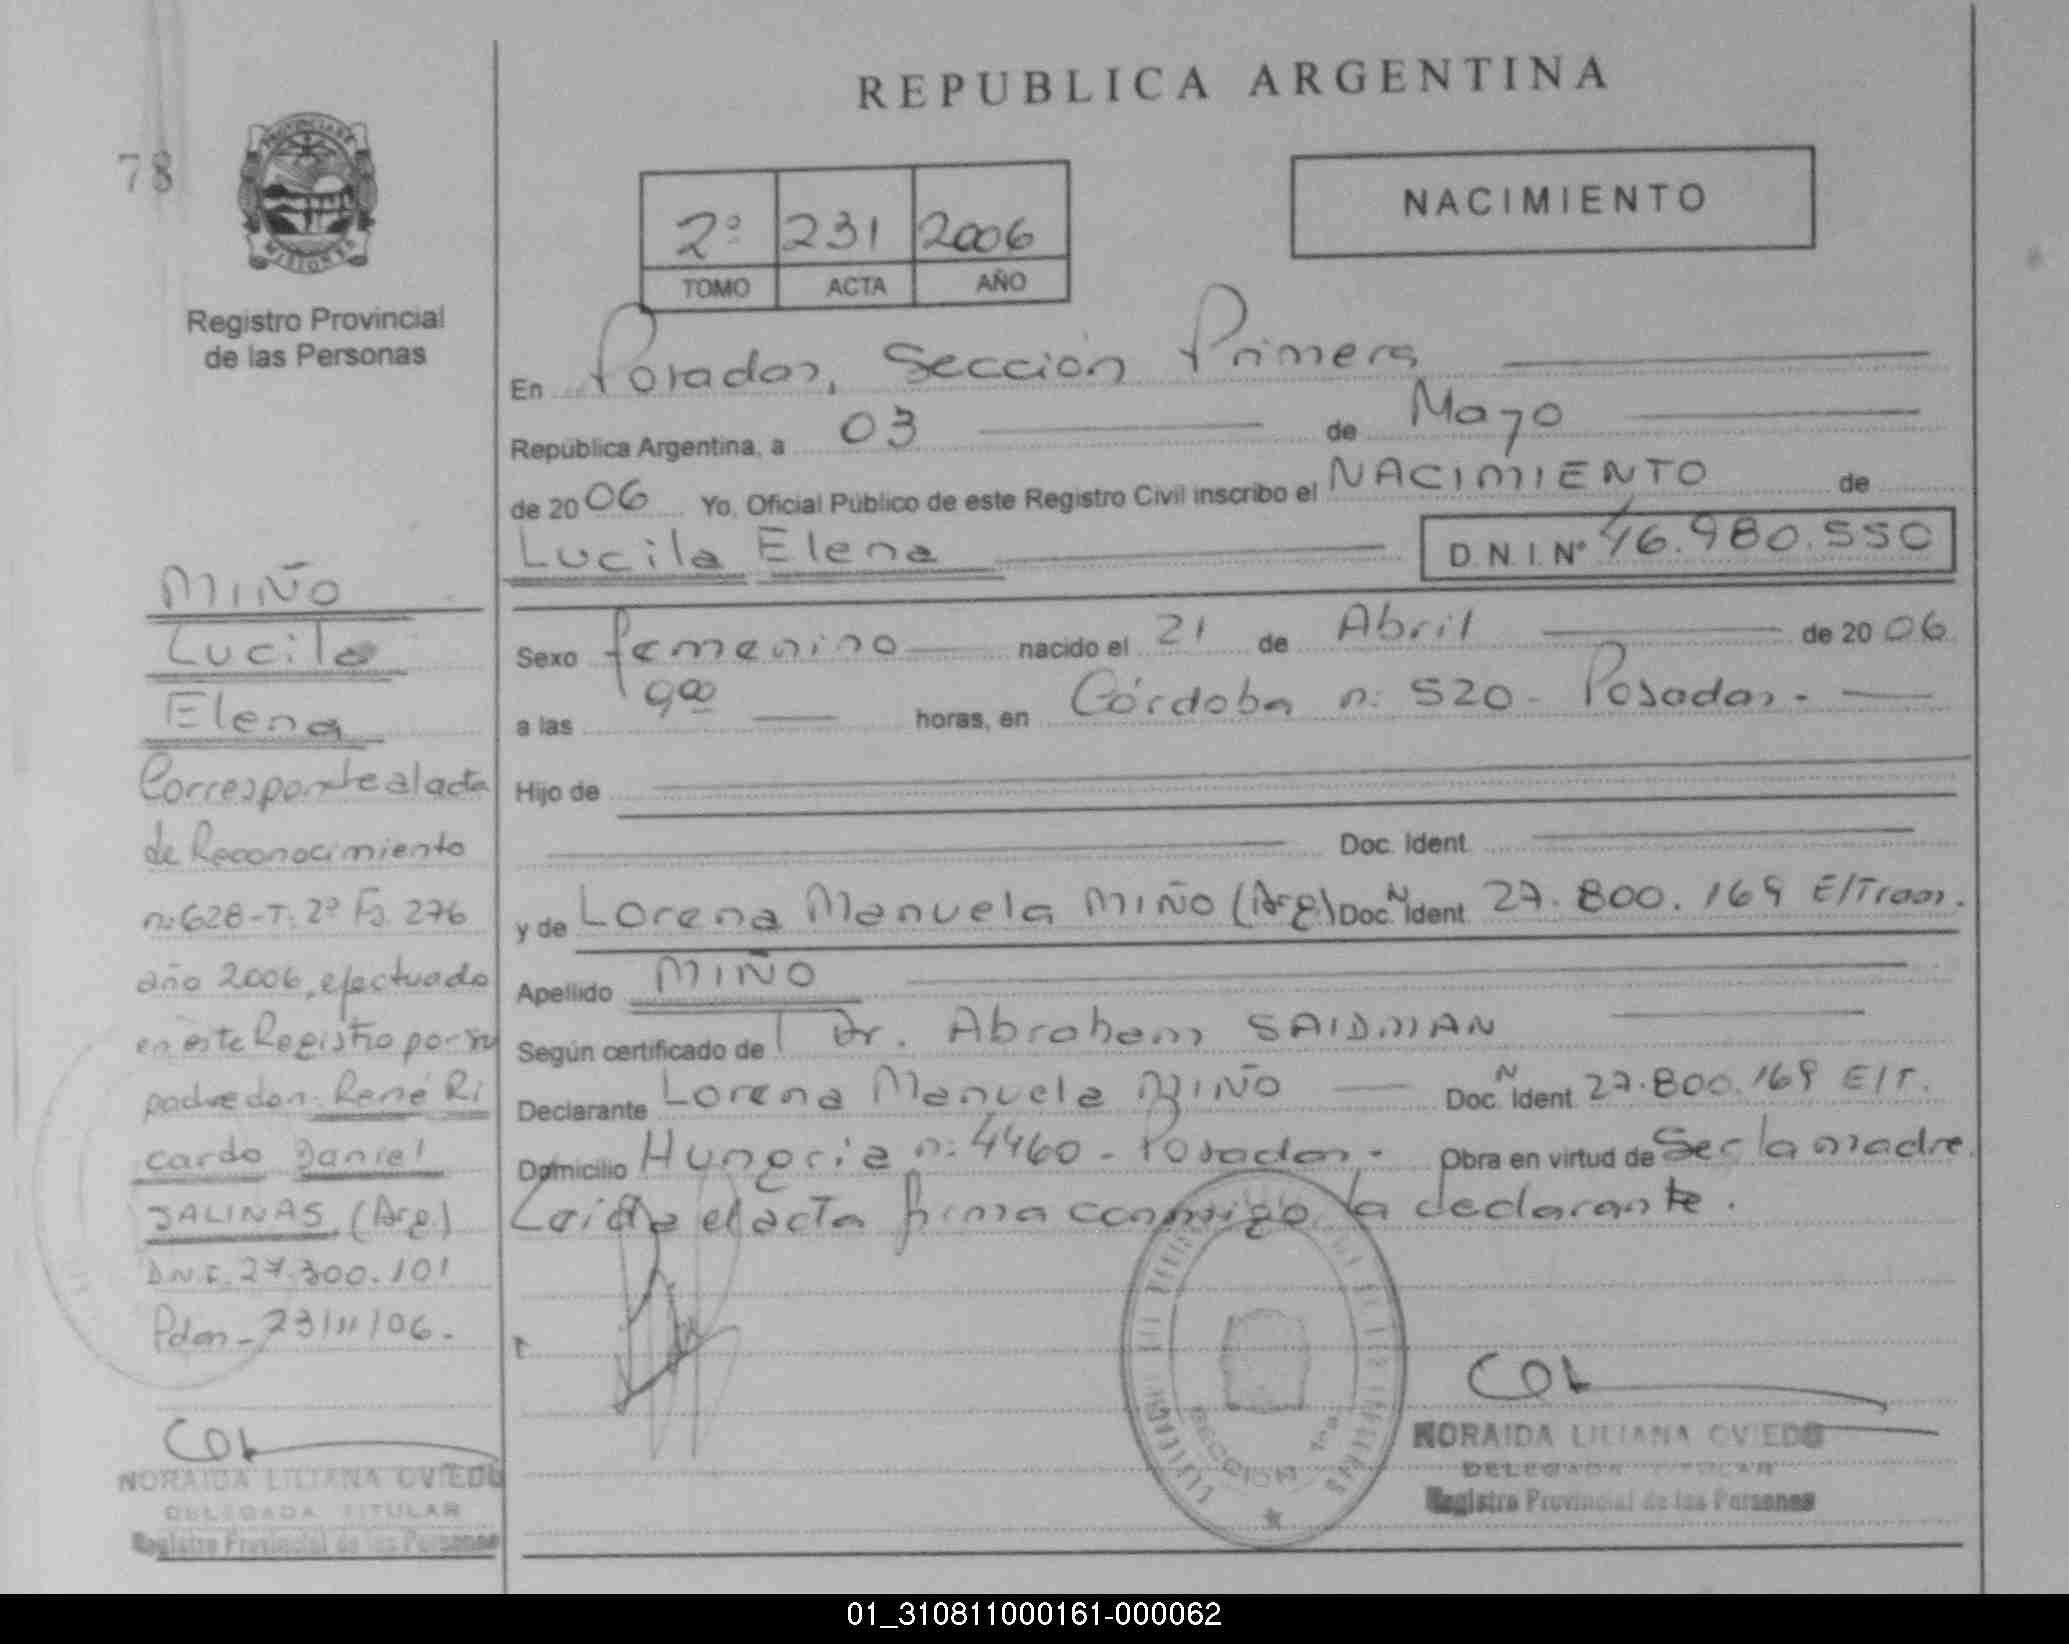 REPUBLICA ARGENTINA
78
PROVINCIA DE
MISIONES
Registro Provincial
de las Personas
2º 231 2006
TOMO ACTA AÑO
NACIMIENTO
En Posadas, Sección Primera
República Argentina, a 03 de Mayo
de 2006 Yo, Oficial Público de este Registro Civil inscribo el NACIMIENTO de
Lucila Elena D.N.I. Nº 46.980.550
Sexo femenino nacido el 21 de Abril de 2006
a las 9 00 horas, en Córdoba n: 520 - Posadas.
Hijo de
Doc. Ident.
y de Lorena Manuela MIÑO (Arg.) Doc. N Ident. 27.800.169 E/Tram.
Apellido MIÑO
Según certificado de Dr. Abraham SAIDMAN
Declarante Lorena Manuela MIÑO Doc. N Ident. 27.800.169 E/T.
Domicilio Hungria n: 4460 - Posadas. Obra en virtud de Ser la madre.
Leida el acta firma conmigo la declarante.
MIÑO
Lucila
Elena
Corresponde al acta
de Reconocimiento
n: 628 - T: 2º Fº. 276
año 2006, efectuado
en este Registro por su
padre don: René Ri
cardo Daniel
SALINAS (Arg.)
D.N.I. 27.300.101
Pdas - 23/11/06.
NORAIDA LILIANA OVIEDO
DELEGADA TITULAR
Registro Provincial de las Personas
SECCION 1ra
NORAIDA LILIANA OVIEDO
DELEGADA TITULAR
Registro Provincial de las Personas
01_310811000161-000062